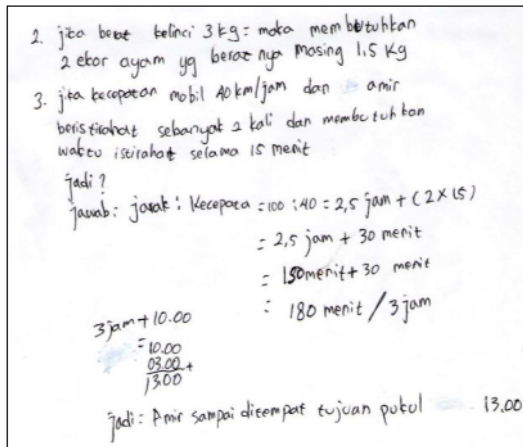 2. jika berat kelinci 3 kg = maka membutuhkan
2 ekor ayam yg beratnya masing 1,5 Kg
3. jika kecepatan mobil 40 km/jam dan amir
beristirahat sebanyak 2 kali dan membutuhkan
waktu istirahat selama 15 menit
jadi ?
jawab : jarak : Kecepata = 100 : 40 = 2,5 jam + (2 x 15)
= 2,5 jam + 30 menit
= 150 menit + 30 menit
= 180 menit / 3 jam
3 jam + 10.00
= 10.00
03.00 +
13.00
jadi : Amir sampai ditempat tujuan pukul 13.00